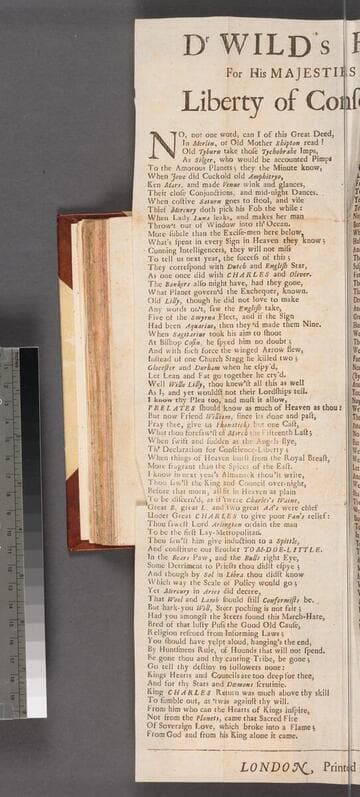 Dr WILD's
For His MAJESTIES
Liberty of Conſc
NO, not one word, can I of this Great Deed,
In Merlin, or Old Mother Shipton read!
Old Tyburn take thoſe Tychobrahe Imps,
As Silger, who would be accounted Pimps
To the Amorous Planets; they the Minute know,
When Jove did Cuckold old Amphitryo,
Ken Mars, and made Venus wink and glances,
Their cloſe Conjunctions, and mid-night Dances.
When coſtive Saturn goes to ſtool, and vile
Thief Mercury doth pick his Fob the while:
When Lady Luna leaks, and makes her man
Throw't out of Window into th' Ocean.
More ſubtle than the Exciſe-men here below,
What's ſpent in every Sign in Heaven they know;
Cunning Intelligencers, they will not miſs
To tell us next year, the ſucceſs of this;
They correſpond with Dutch and Engliſh Star,
As one once did with CHARLES and Oliver.
The Bankers alſo might have, had they gone,
What Planet govern'd the Exchequer, known.
Old Lilly, though he did not love to make
Any words on't, ſaw the Engliſh take,
Five of the Smyrna Fleet, and if the Sign
Had been Aquarius, then they'd made them Nine.
When Sagittarius took his aim to ſhoot
At Biſhop Coſin, he ſpyed him no doubt;
And with ſuch force the winged Arrow flew,
Inſtead of one Church Stagg he killed two;
Gloceſter and Durham when he eſpy'd,
Let Lean and Fat go together he cry'd.
Well Wille Lilly, thou knew'ſt all this as well
As I, and yet wouldſt not their Lordſhips tell.
I know thy Plea too, and muſt it allow,
PRELATES ſhould know as much of Heaven as thou:
But now Friend William, ſince its done and paſt,
Pray thee, give us Phænſticks but one Caſt,
What thou foreſaw'ſt of March the Fifteenth Laſt;
When ſwift and ſudden as the Angels flye,
Th' Declaration for Conſcience-Liberty;
When things of Heaven burſt from the Royal Breaſt,
More fragrant than the Spices of the Eaſt.
I know in next year's Almanack thou'lt write,
Thou ſaw'ſt the King and Council over-night,
Before that morn, all ſit in Heaven as plain
To be diſcern'd, as if 'twere Charles's Waine,
Great B, great L, and two great AA's were chief
Under Great CHARLES to give poor Fan's relief:
Thou ſaweſt Lord Arlington ordain the man
To be the firſt Lay-Metropolitan.
Thou ſaw'ſt him give induction to a Spittle,
And conſtitute our Brother TOM-DOE-LITTLE.
In the Bears Paw, and the Bulls right Eye,
Some Detriment to Prieſts thou didſt eſpye;
And though by Sol in Libra thou didſt know
Which way the Scale of Policy would go;
Yet Mercury in Aries did decree,
That Wool and Lamb ſhould ſtill Conformiſts be.
But hark-you Will, Steer poching is not fair;
Had you amongſt the Steers found this March-Hare,
Bred of that luſty Puſs the Good Old Cauſe,
Religion reſcued from Informing Laws;
You ſhould have yelpt aloud, hanging's the end,
By Huntſmens Rule, of Hounds that will not ſpend.
Be gone thou and thy canting Tribe, be gone;
Go tell thy deſtiny to followers none:
Kings Hearts and Councils are too deep for thee,
And for thy Stars and Dæmons ſcrutinie.
King CHARLES Return was much above thy skill
To fumble out, as 'twas againſt thy will.
From him who can the Hearts of Kings inſpire,
Not from the Planets, came that Sacred Fire
Of Soveraign Love, which broke into a Flame;
From God and from his King alone it came.
LONDON, Printed